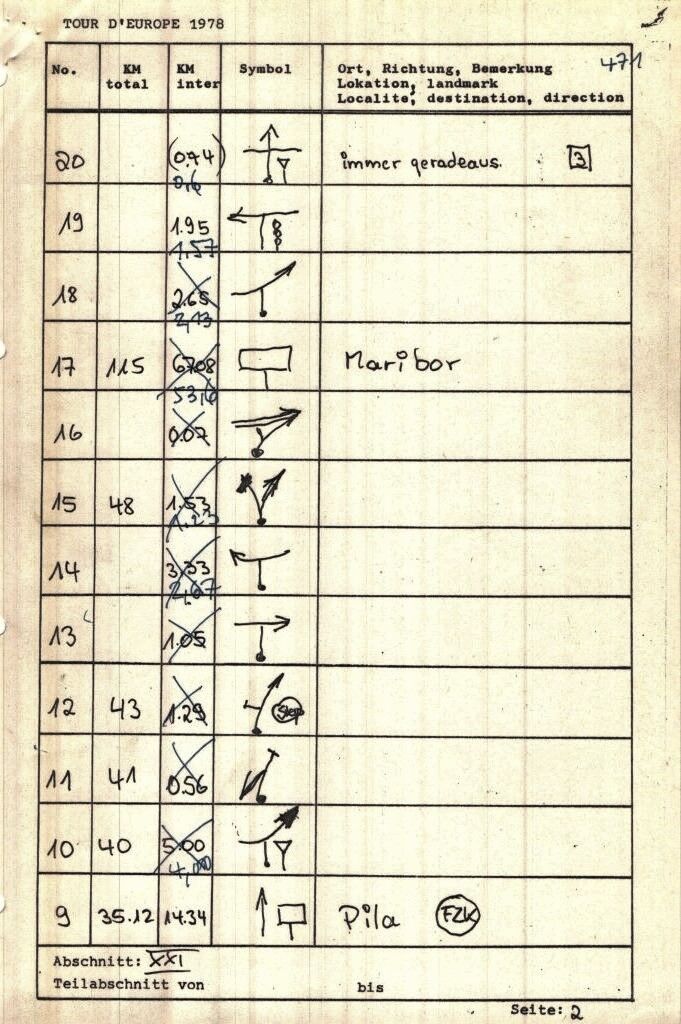 TOUR D'EUROPE 1978
471
No. KM total KM inter Symbol Ort, Richtung, Bemerkung
Lokation, landmark
Localite, destination, direction
20 (0.74) 0,6 immer geradeaus. 3
19 1.95 1,57
18 2.65 2,13
17 115 67.08 53,6 Maribor
16 0.07
15 48 1.53 1.23
14 3.33 2,67
13 1.05
12 43 1.29 Stop
11 41 0.56
10 40 5.00 4,00
9 35.12 14.34 Pila FZK
Abschnitt: XXI
Teilabschnitt von bis
Seite: 2